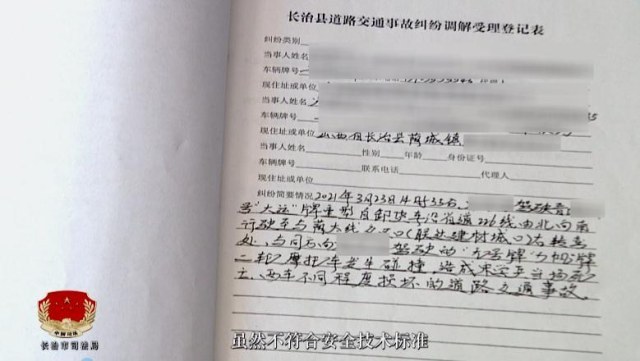 长治县道路交通事故纠纷调解受理登记表
纠纷类别
当事人姓名
车辆牌号
现住址或单位
当事人姓名
车辆牌号
现住址或单位 山西省长治县荫城镇
当事人姓名 性别 年龄 身份证号
车辆牌号 联系电话 代理人
现住址或单位
纠纷简要情况 2021年3月23日14时55分 驾驶晋
号"大运"牌重型自卸货车沿省道226线由北向南
行驶至与荫大线 (联达建材城口)右转
处,与同方向 驾驶的 牌
二轮摩托车发生碰撞,造成 当场死
亡,两车不同程度损坏的道路交通事故。
中国司法
长治市司法局
虽然不符合安全技术标准